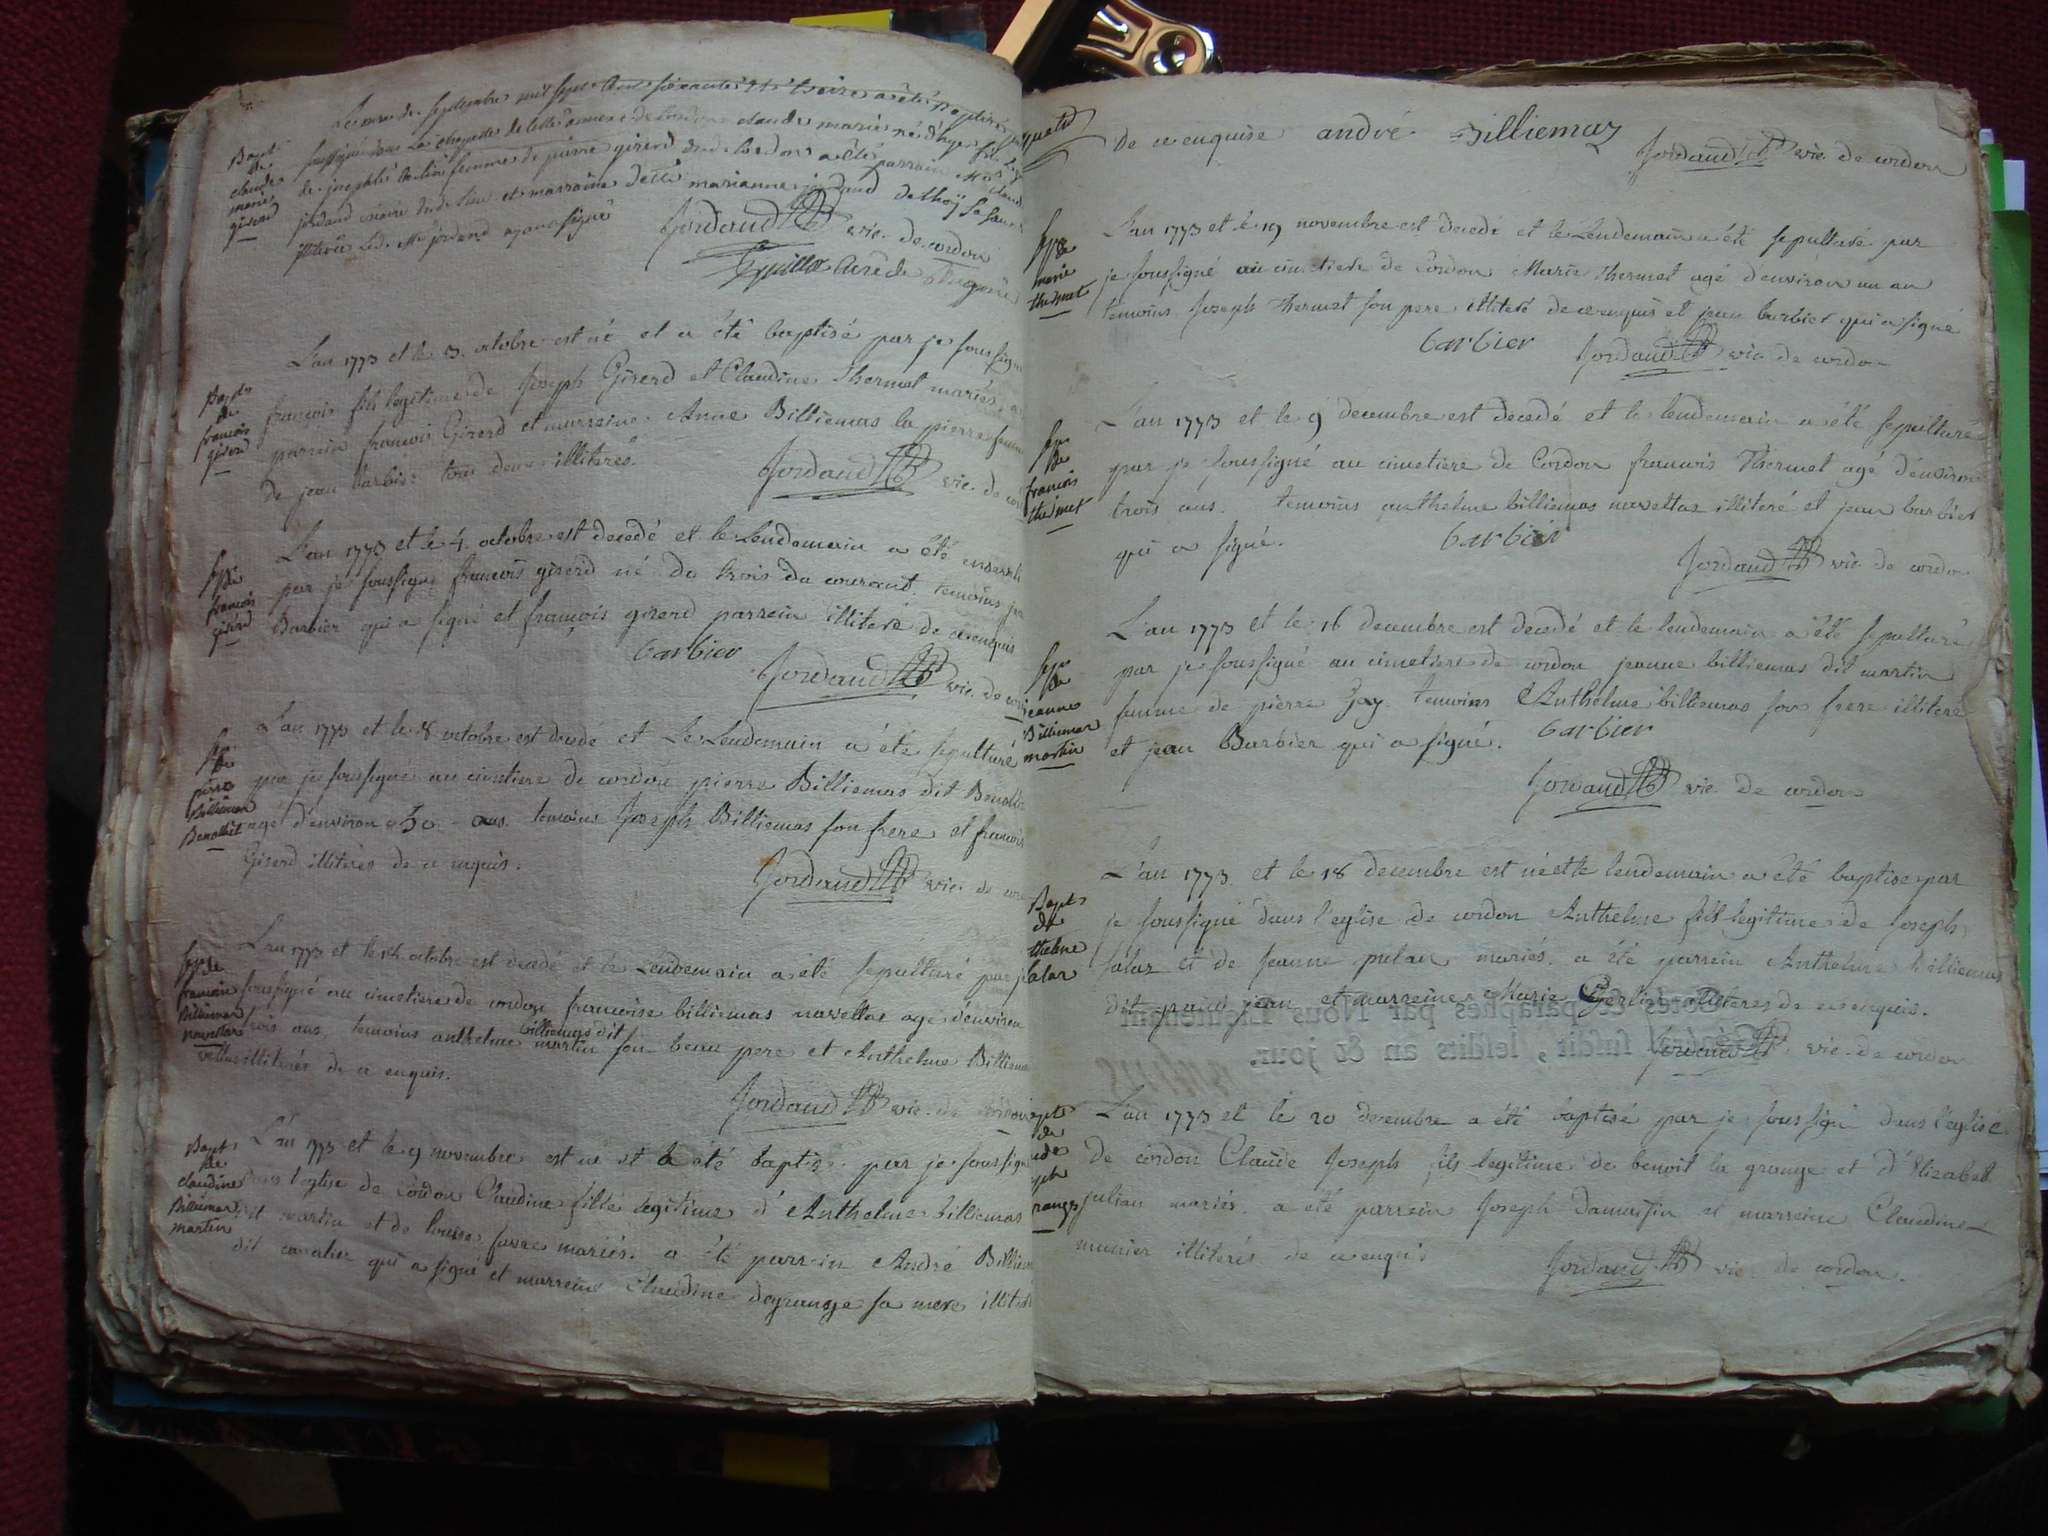 Bapt
de
claude
marie
girerd
soussigné dans la chapelle de claude marie né d'hyer fils
de joseph femme de pierre girerd de Cordon a été parrain
jordand vicaire du lieu et marraine marianne jordand
illiteré Led. Mr jordand ayant signé
Jordand vic. de cordon
Bapt
de
francois
girerd
L'an 1773 et le 3. octobre est né et a été baptisé par je soussigné
francois fils legitime de Joseph Girerd et Claudine Thermet mariés, a
parrain francois Girerd et marreine Anne Billiemas la pierre femme
de jean barbier tou deux illiteres.
Jordand vic. de cor
sep de
francois
girerd
L'an 1773 et le 4. octobre est decedé et le Lendemain a été
par je soussigné francois girerd né du trois du courant. temoins jean
Barbier qui a signé et françois girerd parrein illiteré de ce enquis
barbier
Jordand vic. de cor
sep de
pierre
Billiemas
Benollit
L'an 1773 et le 8 octobre est decedé et Le Lendemain a été sepulturé
par je soussigné au cimetiere de cordon pierre Billiemas dit
agé d'environ 50 ans temoins Joseph Billiemas son frere et francois
Girerd illiterés de ce enquis.
Jordand vic. de cor
sep de
francoise
Billiemas
navettas
L'an 1773 et le 14 octobre est decedé et le Lendemain a été sepulturé par je
soussigné au cimetiere de cordon francoise billiemas navettas agé d'environ
trois ans, temoins anthelme billiemas dit martin son beau pere et Anthelme Billiemas
illiterés de ce enquis.
Jordand vic. de cordon
Bapt
de
claudine
Billiemas
martin
L'an 1773 et le 9 novembre est né et a été baptisé par je soussigné
dans l'eglise de cordon Claudine fille legitime d'Anthelme billiemas
dit martin et de louise favre mariés. a été parrein André Billiemas
dit cavalier qui a signé et marreine Claudine degrange sa mere illiteré
De ce enquise andré Billiemaz
Jordand vic. de cordon
sep de
marie
thermet
L'an 1773 et le 19 novembre est decedé et le Lendemain a été sepulturé par
je soussigné au cimetiere de cordon Marie thermet agé d'environ un an
temoins Joseph thermet son pere illiteré de ce enquis et jean barbier qui a signé
barbier Jordand vic. de cordon
sep
de
francois
thermet
L'an 1773 et le 9 decembre est decedé et le lendemain a été sepulturé
par je soussigné au cimetiere de Cordon francois Thermet agé d'environ
trois ans. temoins anthelme billiemas navettas illiteré et jean barbier
qui a signé. barbier
Jordand vic. de cordon
sep
de
jeanne
Billiemas
martin
L'an 1773 et le 16 decembre est decedé et le lendemain a été sepulturé
par je soussigné au cimetiere de cordon jeanne billiemas dit martin
femme de pierre Gay. temoins Anthelme billiemas son frere illiteré
et jean Barbier qui a signé. barbier
Jordand vic. de cordon
Bapt
de
thelme
salar
L'an 1773 et le 18 decembre est né et le lendemain a été baptisé par
je soussigné dans l'eglise de cordon Anthelme fils legitime de Joseph
Salar et de Jeanne mariés. a été parrein Anthelme billiemas
dit grand jean et marreine Marie illiteres de ce enquis.
Jordand vic. de cordon
Cotés & paraphés par Nous Lieutenant
Général susdit, lesdits an & jour.
L'an 1773 et le 20 decembre a été baptisé par je soussigné dans l'eglise
de cordon Claude Joseph fils legitime de benoit la grange et d'Elizabet
julian mariés. a été parrein Joseph Damaisin et marreine Claudine
munier illiterés de ce enquis
Jordand vic. de cordon.